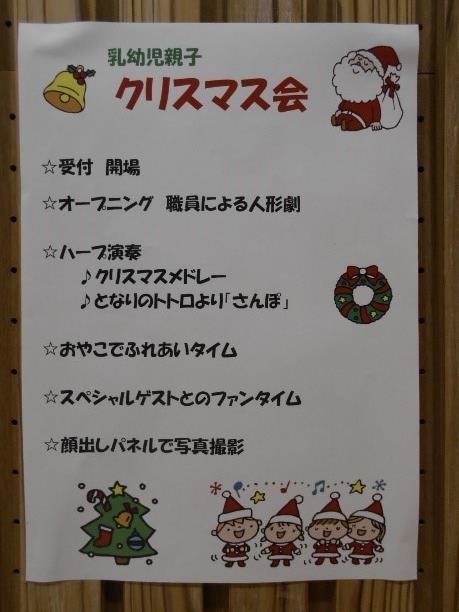 乳幼児親子
クリスマス会
☆受付 開場
☆オープニング 職員による人形劇
☆ハープ演奏
♪クリスマスメドレー
♪となりのトトロより「さんぽ」
☆おやこでふれあいタイム
☆スペシャルゲストとのファンタイム
☆顔出しパネルで写真撮影